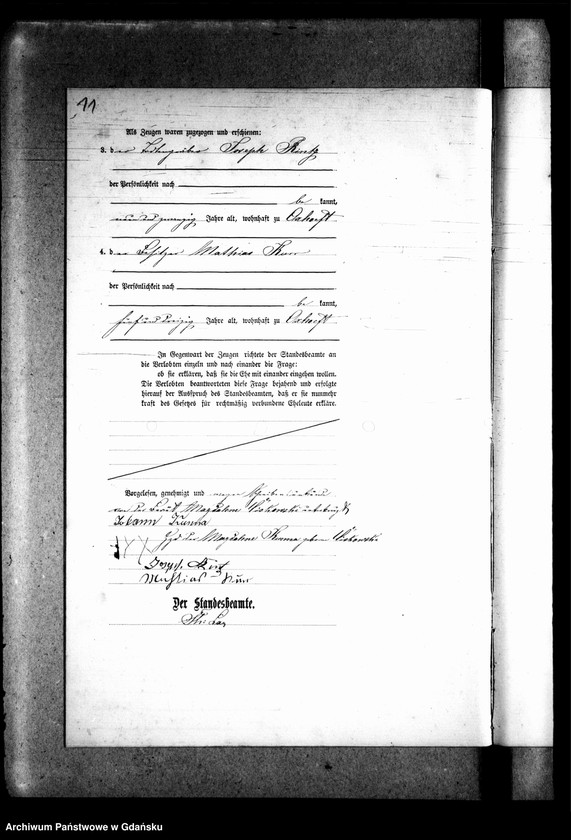 11
Als Zeugen waren zugezogen und erschienen:
3. der Joseph
der Persönlichkeit nach
be kannt,
neun und zwanzig Jahre alt, wohnhaft zu Oxhöft
4. der Besitzer Mathias
der Persönlichkeit nach
be kannt,
fünf und dreizig Jahre alt, wohnhaft zu Oxhöft
In Gegenwart der Zeugen richtete der Standesbeamte an
die Verlobten einzeln und nach einander die Frage:
ob sie erklären, daß sie die Ehe mit einander eingehen wollen.
Die Verlobten beantworteten diese Frage bejahend und erfolgte
hierauf der Ausspruch des Standesbeamten, daß er sie nunmehr
kraft des Gesetzes für rechtmäßig verbundene Eheleute erkläre.
Vorgelesen, genehmigt und wegen
von der Braut Magdalene
Johann
der Magdalene geborne
Joseph
Mathias
Der Standesbeamte.
Archiwum Państwowe w Gdańsku